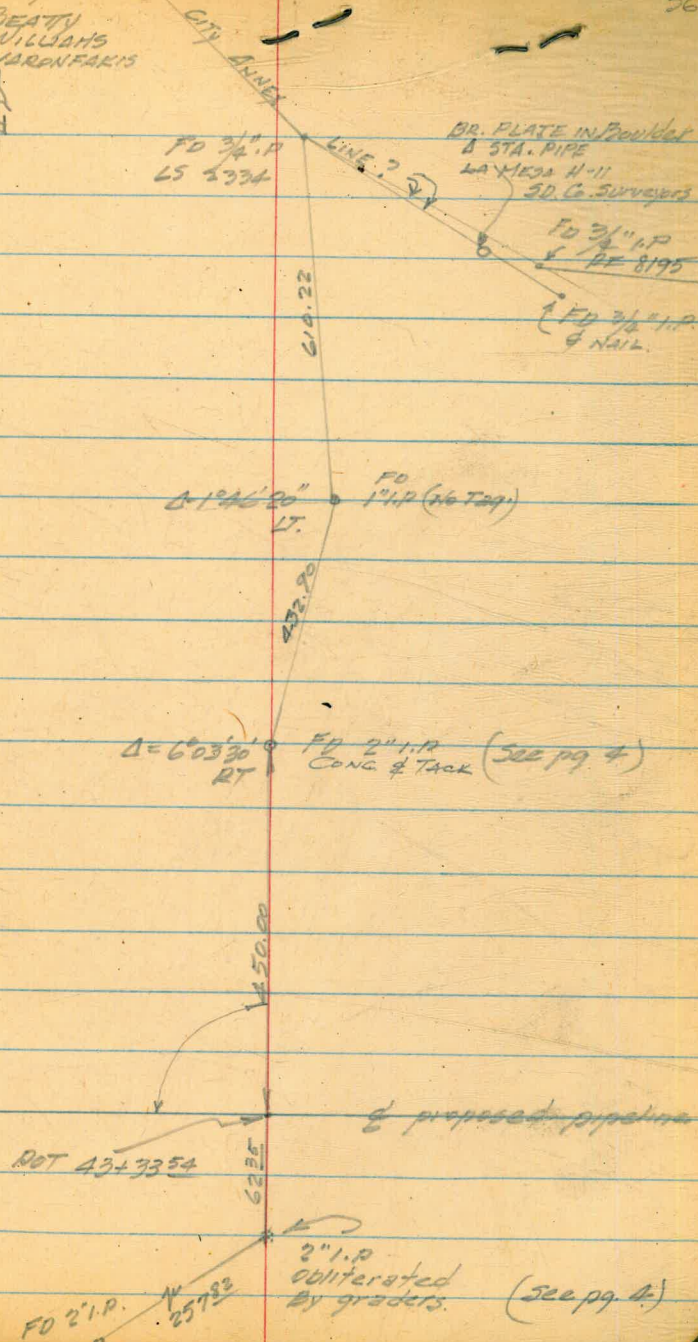 BEATTY
WILLIAMS
VARONFAKIS
36
CITY ANNEX
LINE ?
FD 3/4" I.P
LS 2334
BR. PLATE IN Boulder
Δ STA. PIPE
LA MESA H-11
SD. Co. Surveyors
FD 3/4" I.P
RE 8195
FD 3/4" I.P.
& NAIL.
610.22
Δ=1°46'20"
LT.
FD
1" I.P (No Tag.)
432.90
Δ=6°03'30"
RT
FD 2" I.P.
CONC & TACK (See pg. 4)
450.00
℄ proposed pipeline
POT 43+33 54
62 35
2" I.P
obliterated
By graders. (See pg. 4)
FD 2" I.P.
257 83